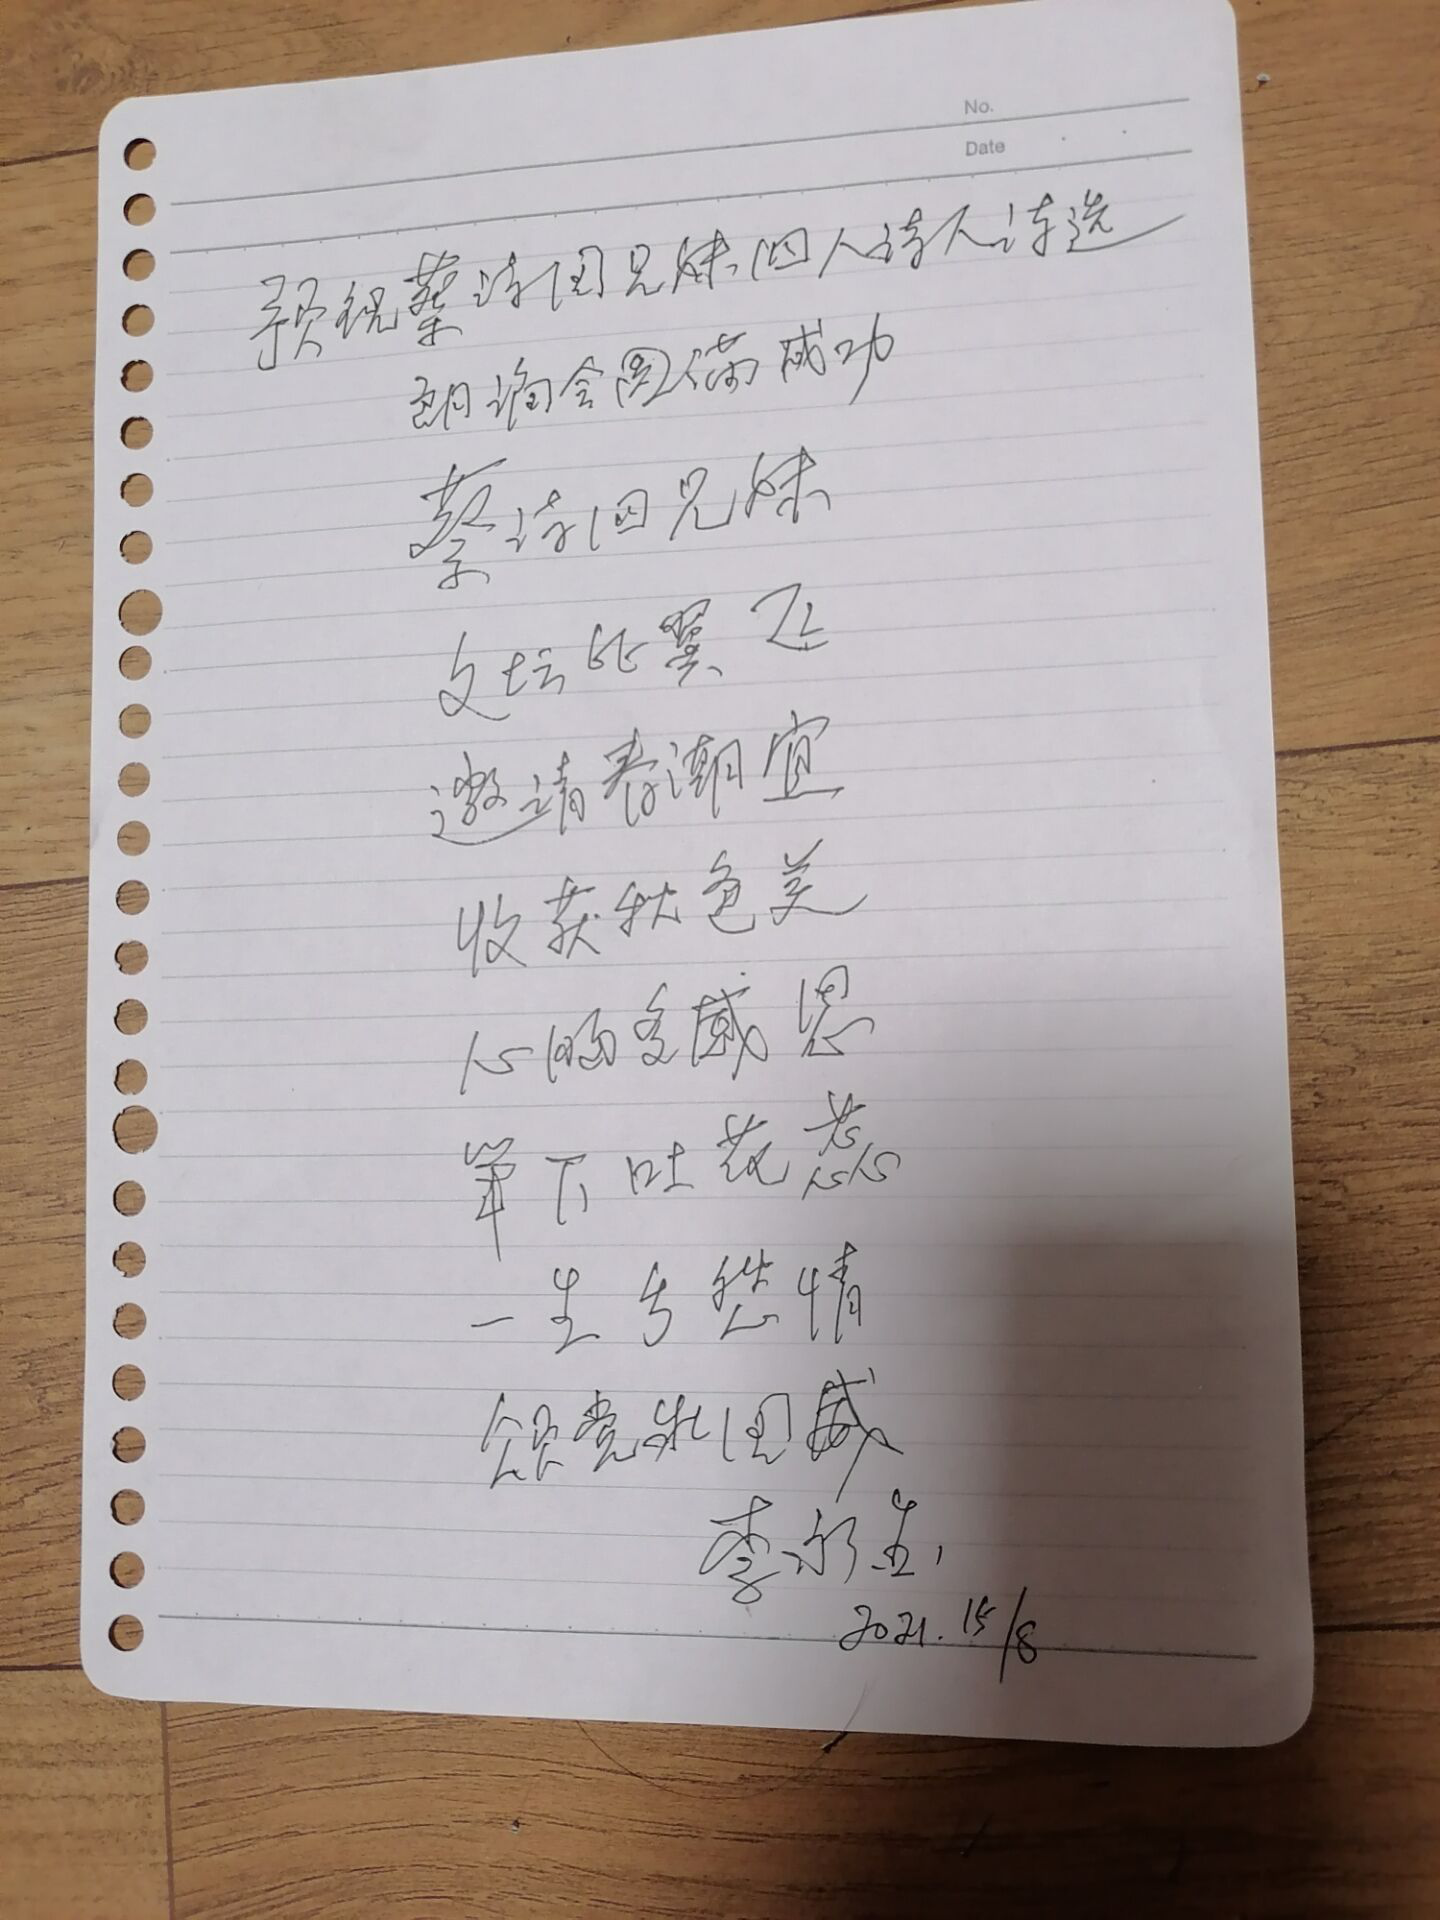 No.
Date
预祝蔡诗国兄妹四人诗人诗选
朗诵会圆满成功
蔡诗四兄妹
文坛比翼飞
邀请春潮宜
收获秋色美
心肠多感恩
笔下吐花蕊
一生与愁情
颂党和国威
李永生
2021.15/8